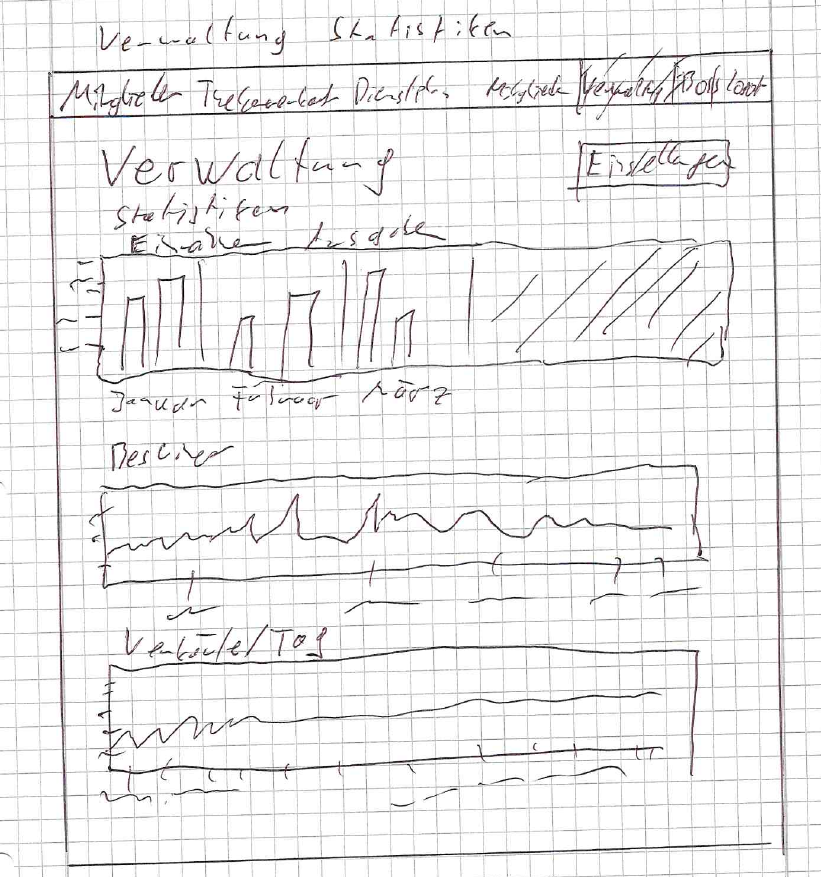 Verwaltung Statistiken
Mitglieder Dienstplan Mitglieder Verwaltung
Verwaltung
Einstellungen
Statistiken
Einnahmen Ausgaben
Januar Februar März
Besucher
Verkäufe/Tag